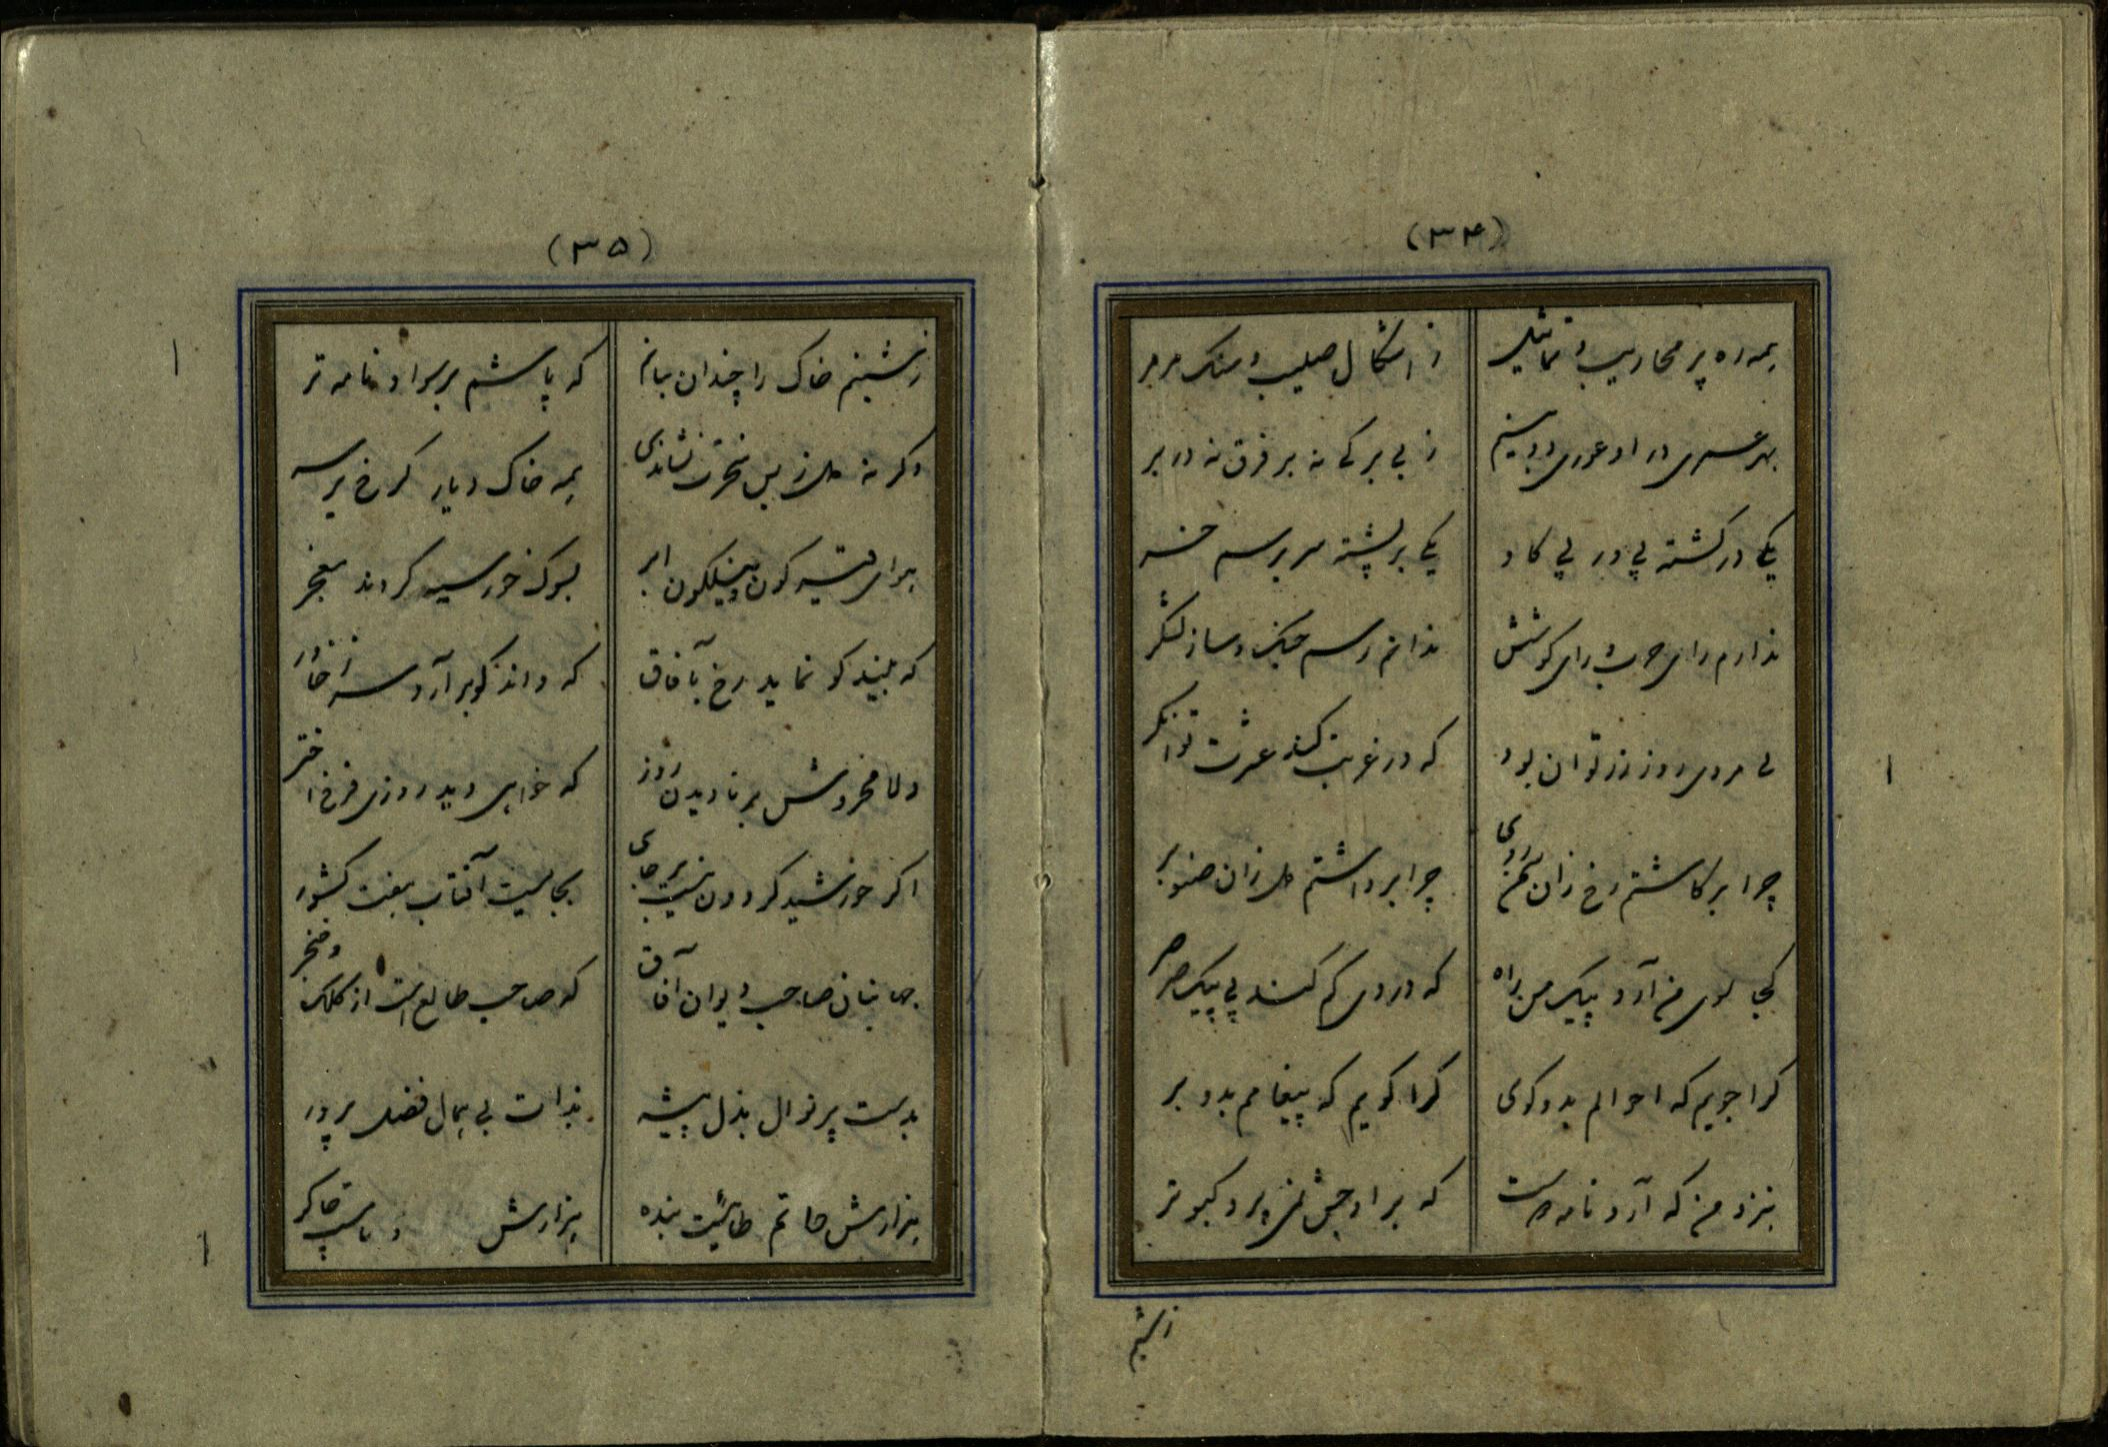 (۳۴)
همه ره پر محاریب و تماثیل
ز اشکال صلیب و سنک مرمر
بهر عسری در او عوری دو بینم
ز بی برکی نه بر فرق نه در بر
یکی در کشته پی در پی کاو
یکی بر پشته سر بر سم خسه
ندارم رای حرب و رای کوشش
ندانم رسم جنک و ساز لشکر
بی مردی روز زر توان بود
که در غربت کند عشرت توانکر
چرا برکاشتم رخ زان سمن روی
چرا برداشتم دل زان صنوبر
کجا سوی من آرد پیک من راه
که در وی کم کند پی پیک صرصر
کرا جویم که احوالم بدو کوی
کرا کویم که پیغامم بدو بر
بنزد من که آرد نامه دوست
که بر اوجش نمی پرد کبوتر
زشینم
(۳۵)
زشینم خاک را چندان بیابم
که پاشم بر سواد نامه تر
وکر نه دل ز بس نخوت نشاندی
همه خاک دیار کرخ بر سر
هوای قیر کون و نیلکون ابر
بسوک خور سیه کردند معجر
که بیند کو نماید رخ بآفاق
که داند کو برآرد سر ز خاور
دلا مخروش بر نادیدن روز
که خواهی دید روزی فرخ اختر
اکر خورشید کردون نیست بر جای
بجا هست آفتاب هفت کشور
جهانبان صاحب دیوان آفاق
که صاحب طالع است از کلک و خنجر
بدست پر نوال بذل پیشه
بذات بی همال فضل پرور
هزارش حاتم طائیست بنده
هزارش چاکر